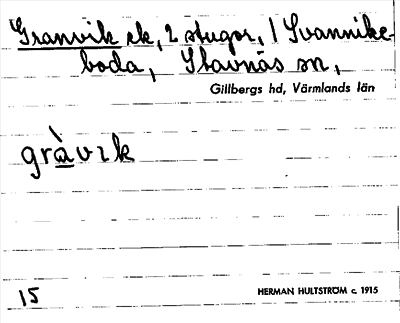 Granvik ek, 2 stugor, / Svannike-
boda, Stavnäs sn,
Gillbergs hd, Värmlands län
gràvɪk
15 HERMAN HULTSTRÖM c. 1915